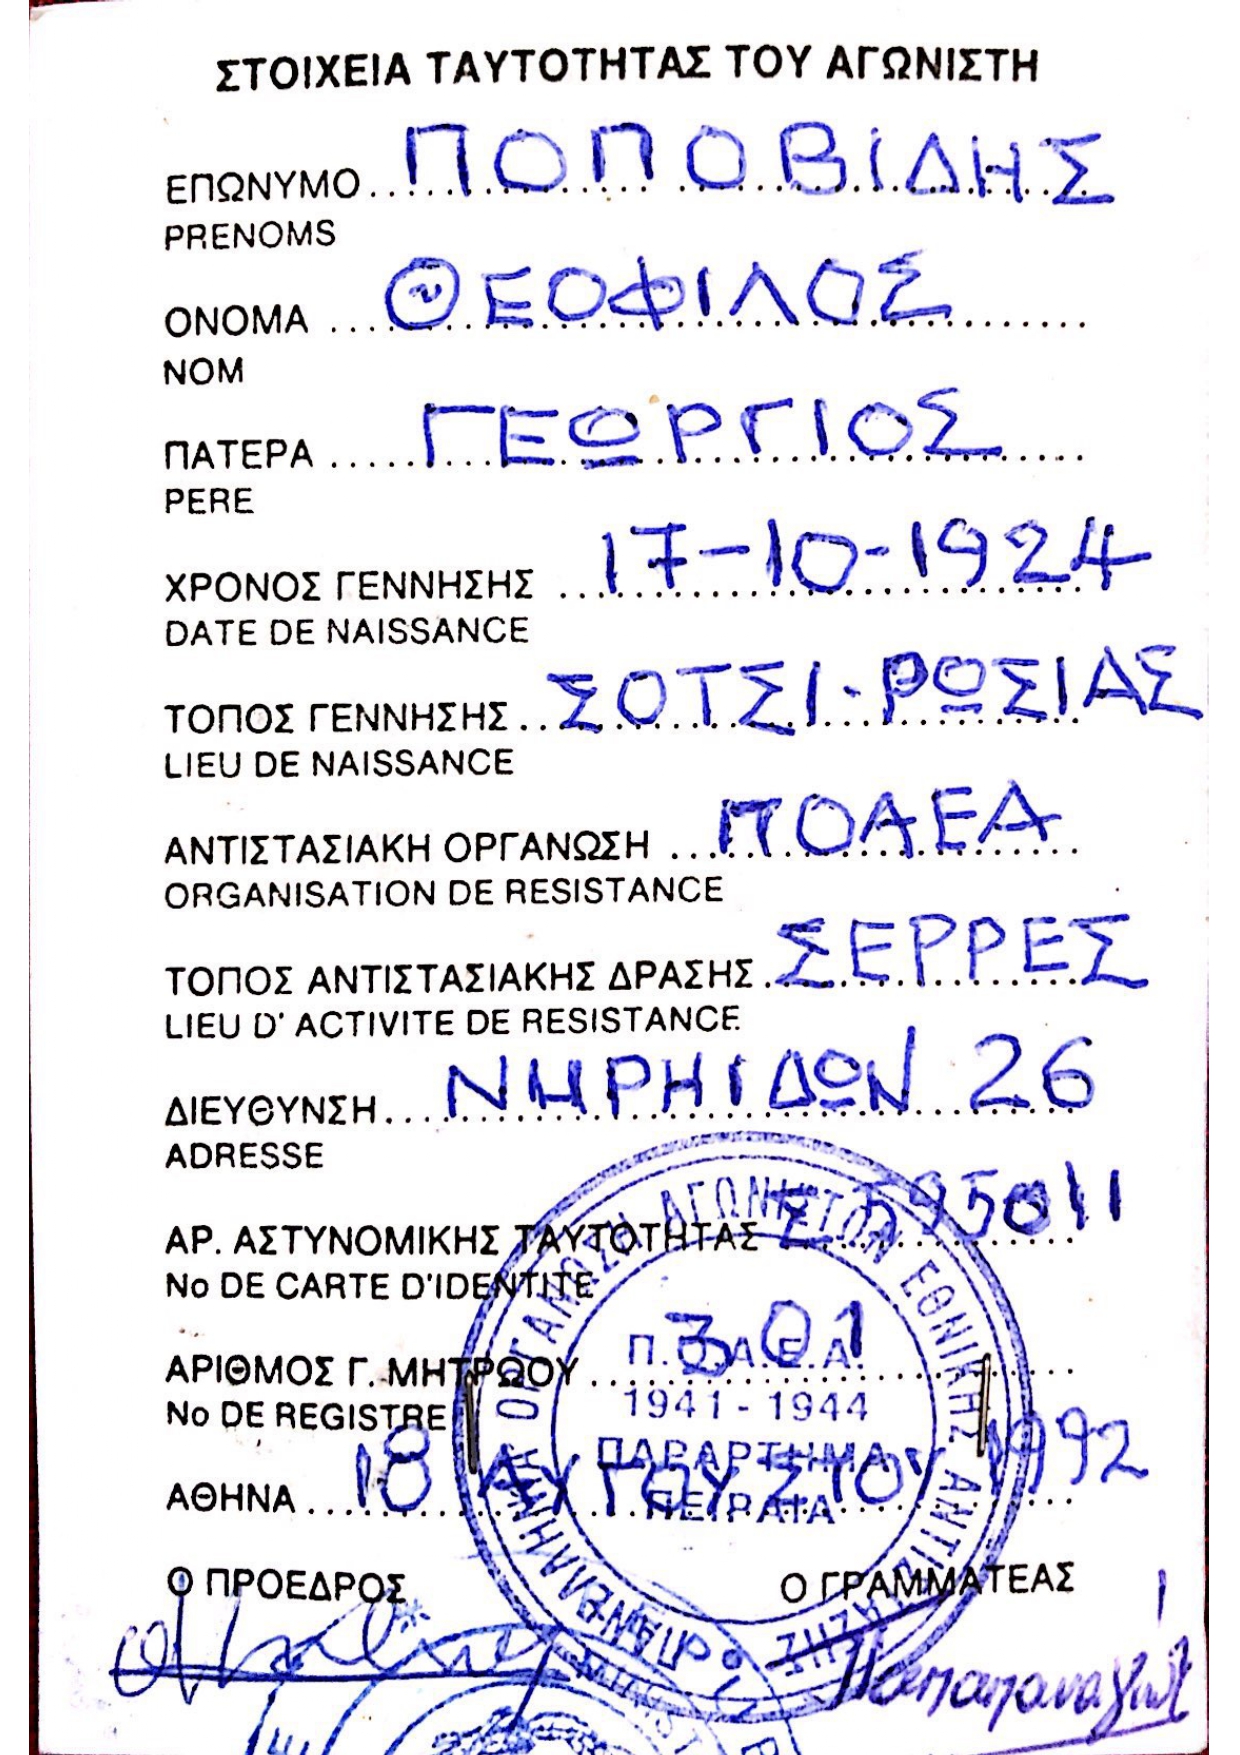 ΣΤΟΙΧΕΙΑ ΤΑΥΤΟΤΗΤΑΣ ΤΟΥ ΑΓΩΝΙΣΤΗ
ΕΠΩΝΥΜΟ ΠΟΠΟΒΙΔΗΣ
PRENOMS
ΟΝΟΜΑ ΘΕΟΦΙΛΟΣ
NOM
ΠΑΤΕΡΑ ΓΕΩΡΓΙΟΣ
PERE
ΧΡΟΝΟΣ ΓΕΝΝΗΣΗΣ 17-10-1924
DATE DE NAISSANCE
ΤΟΠΟΣ ΓΕΝΝΗΣΗΣ ΣΟΤΣΙ-ΡΩΣΙΑΣ
LIEU DE NAISSANCE
ΑΝΤΙΣΤΑΣΙΑΚΗ ΟΡΓΑΝΩΣΗ ΠΟΑΕΑ
ORGANISATION DE RESISTANCE
ΤΟΠΟΣ ΑΝΤΙΣΤΑΣΙΑΚΗΣ ΔΡΑΣΗΣ ΣΕΡΡΕΣ
LIEU D' ACTIVITE DE RESISTANCE
ΔΙΕΥΘΥΝΣΗ ΝΗΡΗΙΔΩΝ 26
ADRESSE
ΑΡ. ΑΣΤΥΝΟΜΙΚΗΣ ΤΑΥΤΟΤΗΤΑΣ Σ 595011
No DE CARTE D'IDENTITE
ΑΡΙΘΜΟΣ Γ. ΜΗΤΡΩΟΥ 301
No DE REGISTRE
ΑΘΗΝΑ 18 ΑΥΓΟΥΣΤΟΥ 1992
Ο ΠΡΟΕΔΡΟΣ Ο ΓΡΑΜΜΑΤΕΑΣ
ΠΑΝΕΛΛΗΝΙΑ ΟΡΓΑΝΩΣΗ ΑΓΩΝΙΣΤΩΝ ΕΘΝΙΚΗΣ ΑΝΤΙΣΤΑΣΗΣ
Π.Ο.Α.Ε.Α.
1941 - 1944
ΠΑΡΑΡΤΗΜΑ
ΠΕΙΡΑΙΑ